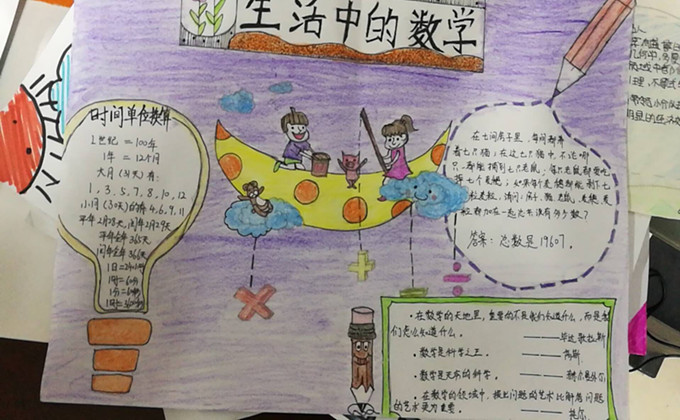 生活中的数学
时间单位换算
1世纪 = 100年
1年 = 12个月
大月(31天)有:
1, 3, 5, 7, 8, 10, 12
小月(30天)的有4,6,9,11
平年2月28天,闰年2月29天
平年全年365天
闰年全年366天
1日=24小时
1时=60分
1分=60秒
1时=3600秒
在七间房子里,每间都养
着七只猫;在这七只猫中,不论哪
只,都能捕到七只老鼠;每只老鼠都要吃
掉七个麦穗;如果每个麦穗都能剥下七
粒麦粒,请问:房子、猫、老鼠、麦穗、麦
粒都加在一起总共有多少数?
答案:总数是19607。
在数学的天地里,重要的不是我们知道什么,而是我
们怎么知道什么。
——毕达歌拉斯
数学是科学之王。
——高斯
数学是无穷的科学。
——赫尔曼外尔
在数学的领域中,提出问题的艺术比解答问题
的艺术更为重要。
——托尔